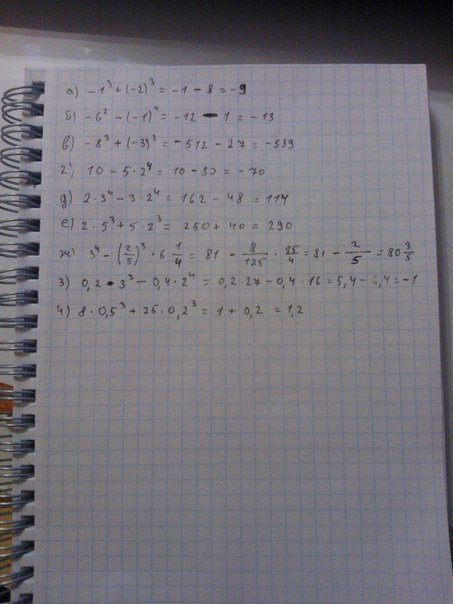 а) -1³ + (-2)³ = -1 - 8 = -9
б) -6² - (-1)⁴ = -12 - 1 = -13
в) -8³ + (-3)³ = -512 - 27 = -539
г) 10 - 5 · 2⁴ = 10 - 80 = -70
д) 2 · 3⁴ - 3 · 2⁴ = 162 - 48 = 114
е) 2 · 5³ + 5 · 2³ = 250 + 40 = 290
ж) 3⁴ - (2/5)³ · 6 1/4 = 81 - 8/125 · 25/4 = 81 - 2/5 = 80 3/5
з) 0,2 · 3³ - 0,4 · 2⁴ = 0,2 · 27 - 0,4 · 16 = 5,4 - 6,4 = -1
и) 8 · 0,5³ + 25 · 0,2³ = 1 + 0,2 = 1,2